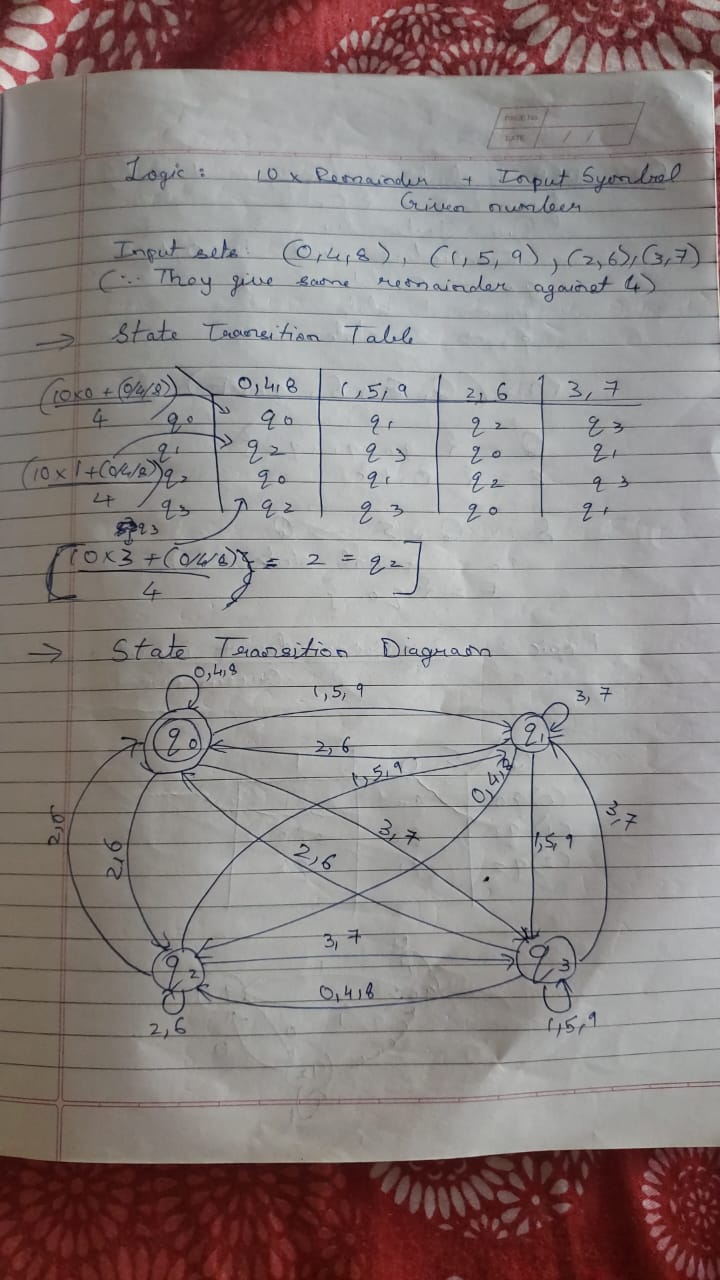 PAGE NO.
DATE / /
Logic : 10 x Remainder + Input Symbol
Given number
Input sets: (0,4,8), (1,5,9), (2,6), (3,7)
(∵ They give same remainder against 4)
→ State Transition Table
(10x0 + (0/4/8))
4
0,4,8 1,5,9 2,6 3,7
q0 q0 q1 q2 q3
q1 q2 q3 q0 q1
(10x1+(0/4/8))
4
q2 q0 q1 q2 q3
q3 q2 q3 q0 q1
q3
[(10x3+(0/4/8)} = 2 = q2]
4
→ State Transition Diagram
0,4,8
1,5,9
3,7
q0
q1
2,6
1,5,9
0,4,8
2,6
2,6
3,7
2,6
1,5,9
3,7
3,7
q2
q3
0,4,8
2,6
1,5,9